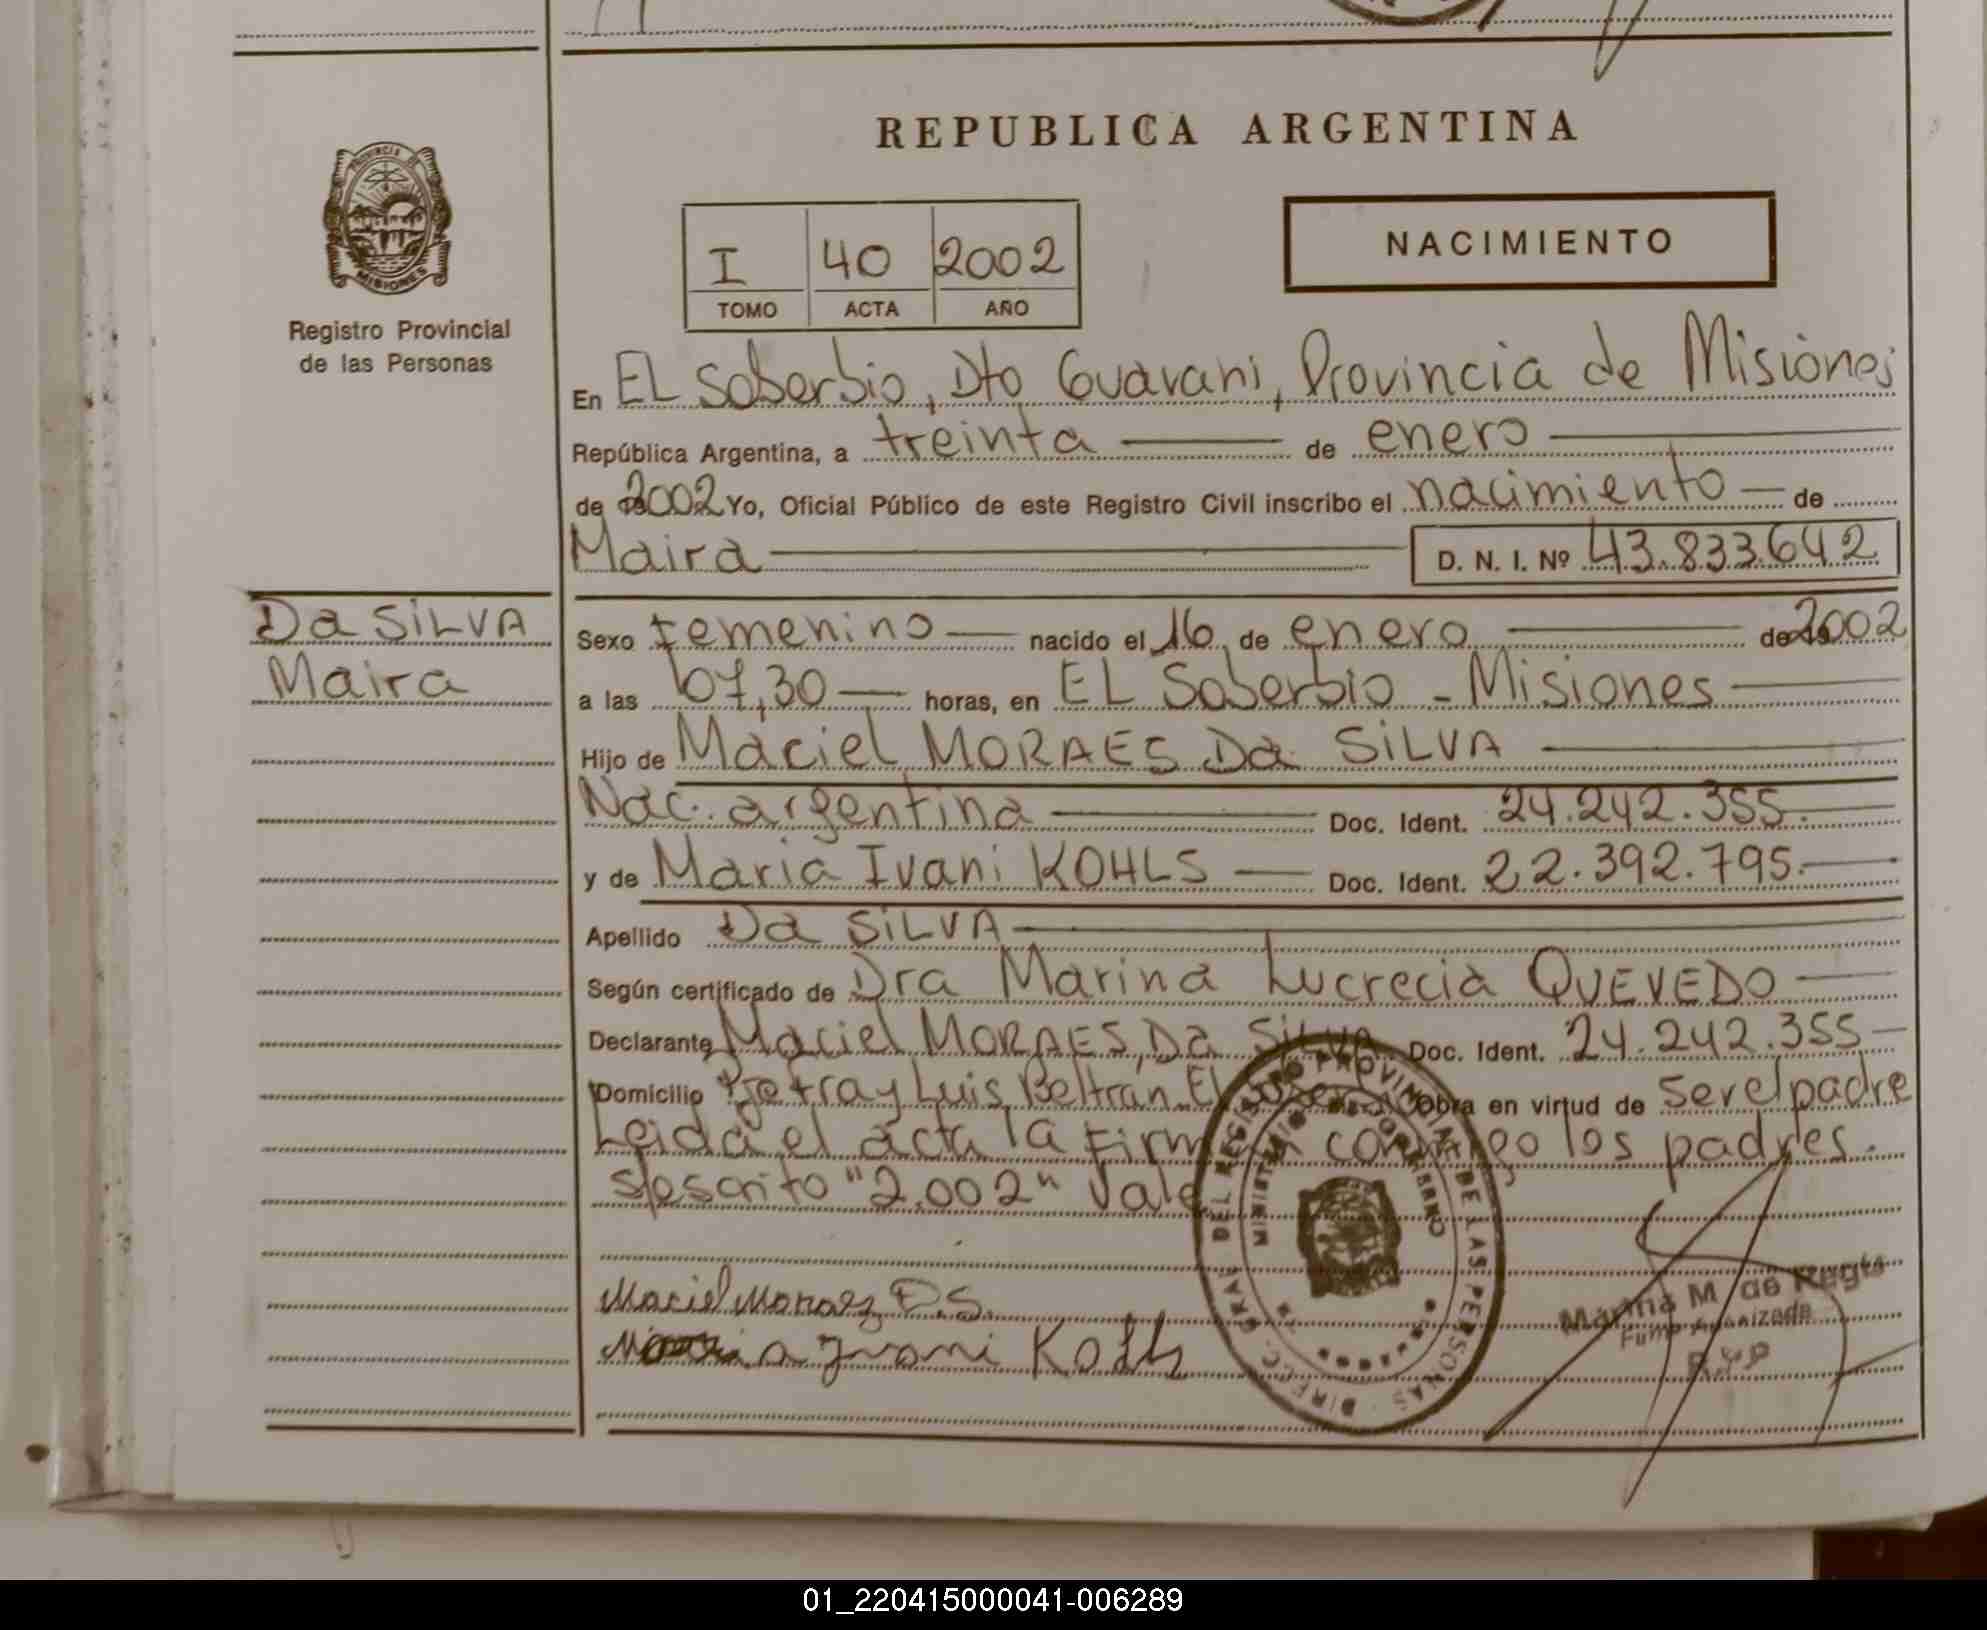 REPUBLICA ARGENTINA
PROVINCIA DE
MISIONES
Registro Provincial
de las Personas
I 40 2002
TOMO ACTA AÑO
NACIMIENTO
En EL Soberbio, Dto Guarani, Provincia de Misiones
República Argentina, a treinta de enero
de 2002 Yo, Oficial Público de este Registro Civil inscribo el nacimiento de
Maira D. N. I. Nº 43.833.642
Da SILVA
Maira
Sexo femenino nacido el 16 de enero de 2002
a las 07,30 horas, en EL Soberbio - Misiones
Hijo de Maciel MORAES Da SILVA
Nac. argentina Doc. Ident. 24.242.355.
y de Maria Ivani KOHLS Doc. Ident. 22.392.795.
Apellido Da SILVA
Según certificado de Dra Marina Lucrecia QUEVEDO
Declarante Maciel MORAES Da Silva Doc. Ident. 24.242.355
Domicilio fray Luis Beltran El Obra en virtud de ser el padre
Leida el acta la conmigo los padres.
s/escrito "2.002" Vale
DIRECC. GRAL DEL REGISTRO PROVINCIAL DE LAS PERSONAS
MINISTERIO
Maciel Moraes D.S.
Maria Ivani Kohls
Marina M de Regis
R.P.P
01_220415000041-006289